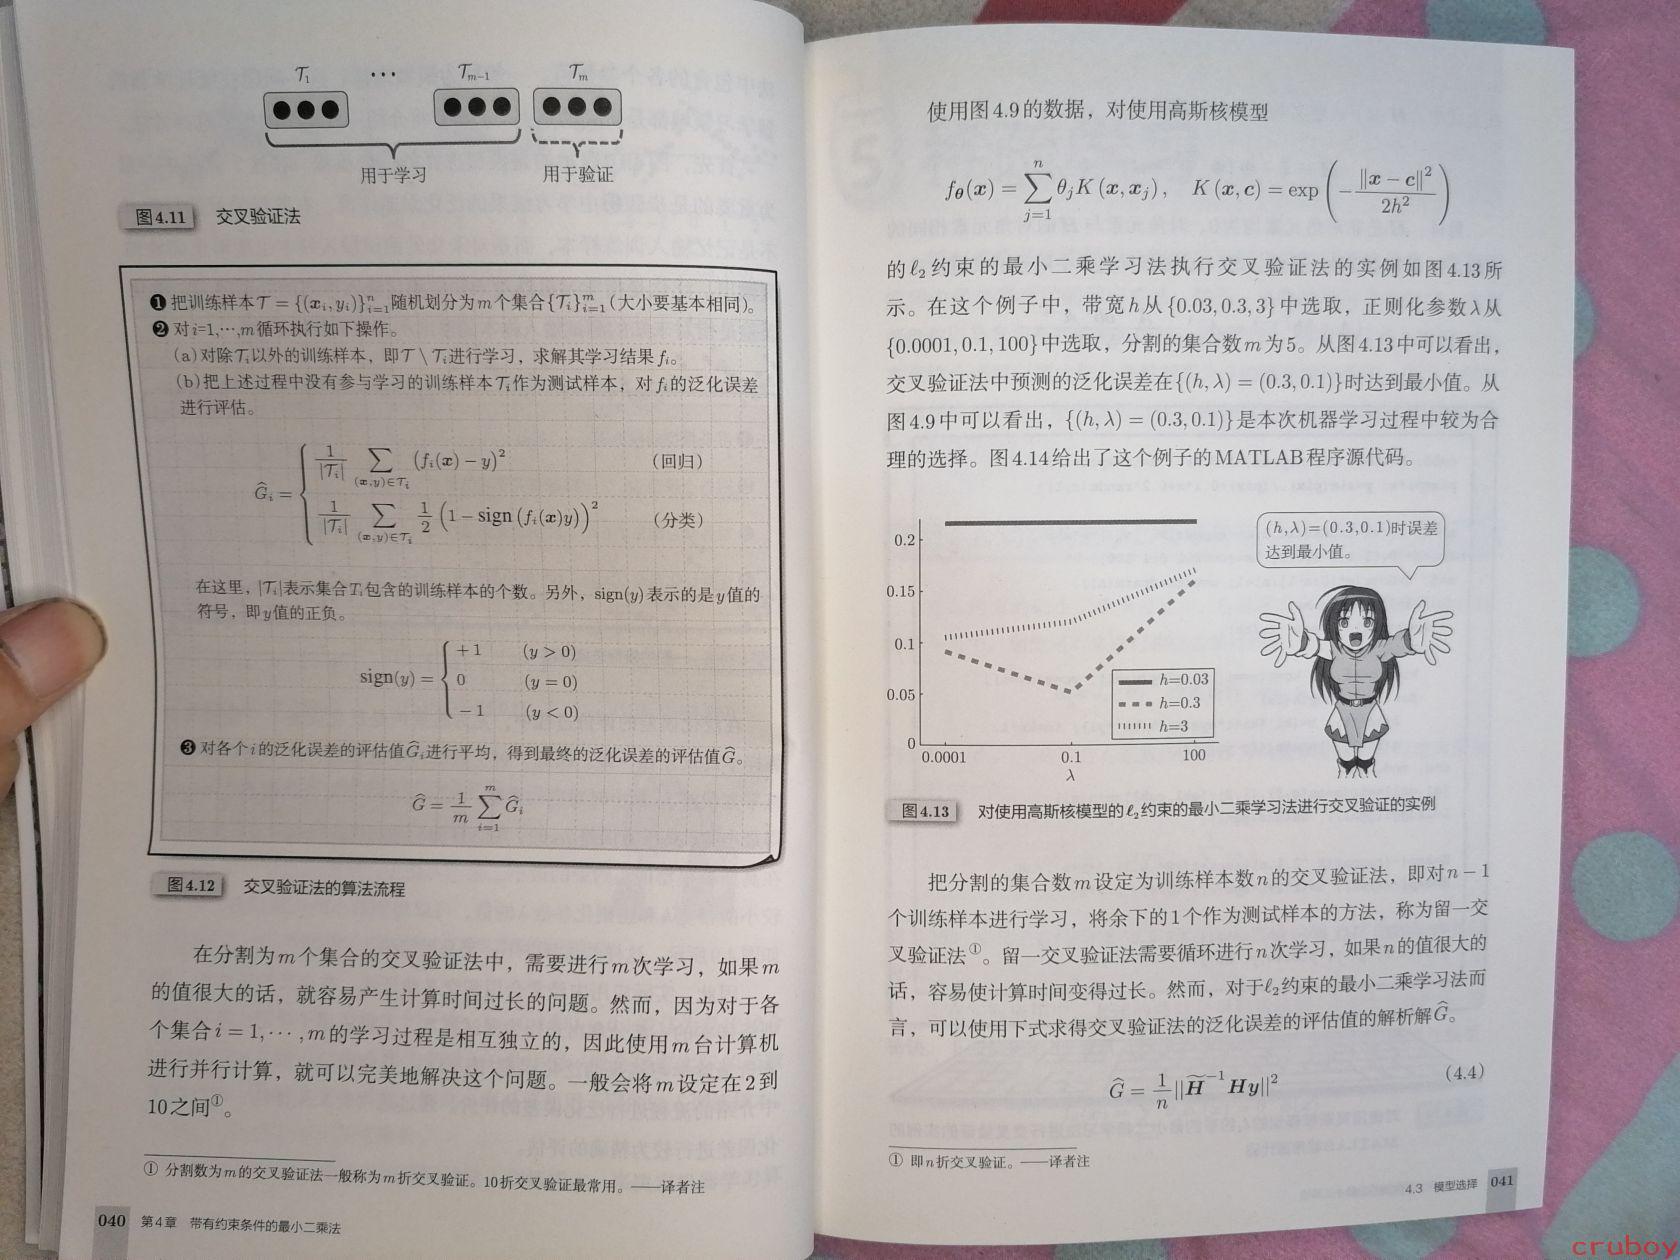 𝒯₁ ⋯ 𝒯ₘ₋₁ 𝒯ₘ
用于学习 用于验证
图4.11 交叉验证法
❶把训练样本𝒯 = {(𝒙ᵢ, yᵢ)}ⁿᵢ₌₁随机划分为m个集合{𝒯ᵢ}ᵐᵢ₌₁(大小要基本相同)。
❷对i=1,⋯,m循环执行如下操作。
(a)对除𝒯ᵢ以外的训练样本，即𝒯 \ 𝒯ᵢ进行学习，求解其学习结果fᵢ。
(b)把上述过程中没有参与学习的训练样本𝒯ᵢ作为测试样本，对fᵢ的泛化误差
进行评估。
Ĝᵢ = { 1/|𝒯ᵢ| ∑(𝒙,y)∈𝒯ᵢ (fᵢ(𝒙) − y)² （回归）
1/|𝒯ᵢ| ∑(𝒙,y)∈𝒯ᵢ 1/2 (1 − sign (fᵢ(𝒙)y))² （分类）
在这里，|𝒯ᵢ|表示集合𝒯ᵢ包含的训练样本的个数。另外，sign(y)表示的是y值的
符号，即y值的正负。
sign(y) = { +1 (y > 0)
0 (y = 0)
−1 (y < 0)
❸对各个i的泛化误差的评估值Ĝᵢ进行平均，得到最终的泛化误差的评估值Ĝ。
Ĝ = 1/m ∑ᵐᵢ₌₁ Ĝᵢ
图4.12 交叉验证法的算法流程
在分割为m个集合的交叉验证法中，需要进行m次学习，如果m
的值很大的话，就容易产生计算时间过长的问题。然而，因为对于各
个集合i = 1, ⋯ , m的学习过程是相互独立的，因此使用m台计算机
进行并行计算，就可以完美地解决这个问题。一般会将m设定在2到
10之间①。
① 分割数为m的交叉验证法一般称为m折交叉验证。10折交叉验证最常用。——译者注
040 第4章 带有约束条件的最小二乘法
使用图4.9的数据，对使用高斯核模型
f_θ(𝒙) = ∑ⁿⱼ₌₁ θⱼK (𝒙, 𝒙ⱼ) , K (𝒙, 𝒄) = exp (− ‖𝒙 − 𝒄‖² / 2h²)
的ℓ₂约束的最小二乘学习法执行交叉验证法的实例如图4.13所
示。在这个例子中，带宽h从{0.03, 0.3, 3}中选取，正则化参数λ从
{0.0001, 0.1, 100}中选取，分割的集合数m为5。从图4.13中可以看出，
交叉验证法中预测的泛化误差在{(h, λ) = (0.3, 0.1)}时达到最小值。从
图4.9中可以看出，{(h, λ) = (0.3, 0.1)}是本次机器学习过程中较为合
理的选择。图4.14给出了这个例子的MATLAB程序源代码。
0.2
0.15
0.1
0.05
0
0.0001 0.1 100
λ
h=0.03
h=0.3
h=3
(h,λ)=(0.3,0.1)时误差
达到最小值。
图4.13 对使用高斯核模型的ℓ₂约束的最小二乘学习法进行交叉验证的实例
把分割的集合数m设定为训练样本数n的交叉验证法，即对n − 1
个训练样本进行学习，将余下的1个作为测试样本的方法，称为留一交
叉验证法①。留一交叉验证法需要循环进行n次学习，如果n的值很大的
话，容易使计算时间变得过长。然而，对于ℓ₂约束的最小二乘学习法而
言，可以使用下式求得交叉验证法的泛化误差的评估值的解析解Ĝ。
Ĝ = 1/n ||H̃⁻¹Hy||² (4.4)
① 即n折交叉验证。——译者注
4.3 模型选择 041
cruboy